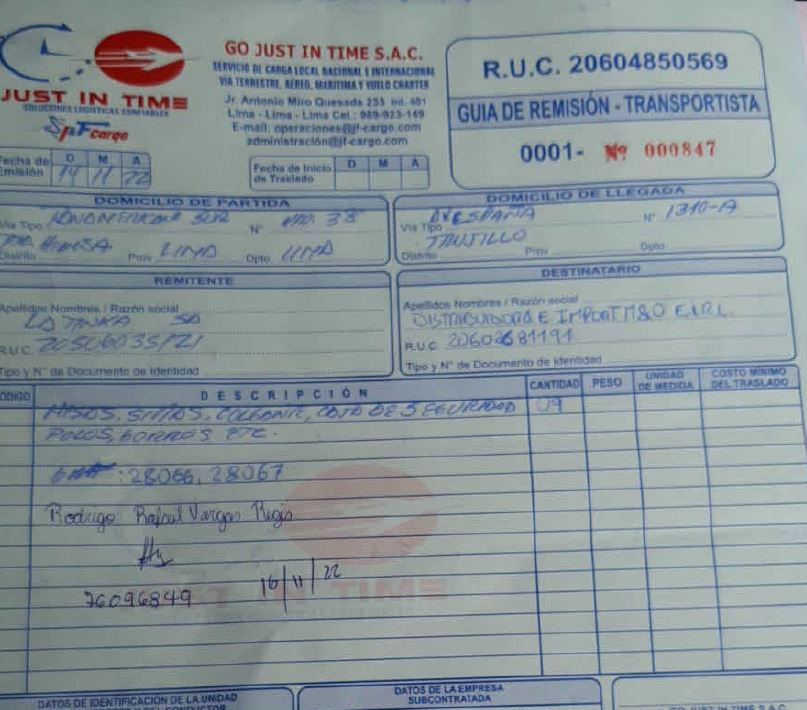 JUST IN TIME
SOLUCIONES LOGISTICAS CONFIABLES
SpF cargo
GO JUST IN TIME S.A.C.
SERVICIO DE CARGA LOCAL NACIONAL E INTERNACIONAL
VIA TERRESTRE, AEREO, MARITIMA Y VUELO CHARTER
Jr. Antonio Miro Quesada 233 int. 401
Lima - Lima - Lima Cel.: 989-923-149
E-mail: operaciones@jf-cargo.com
administración@jf-cargo.com
R.U.C. 20604850569
GUIA DE REMISIÓN - TRANSPORTISTA
0001- Nº 000847
Fecha de Emisión D M A
14 11 22
Fecha de Inicio de Traslado D M A
DOMICILIO DE PARTIDA
Via Tipo SUR Nº 38
Distrito Prov. LIMA Dpto. LIMA
DOMICILIO DE LLEGADA
Via Tipo AV ESPAÑA Nº 1310-A
TRUJILLO
Distrito Prov. Dpto.
REMITENTE
Apellidos Nombres / Razón social
LA TINKA SA
R.U.C. 20506035121
Tipo y N° de Documento de Identidad
DESTINATARIO
Apellidos Nombres / Razón social
DISTRIBUIDORA E IMPORT M&O E.I.R.L
R.U.C. 20602681191
Tipo y N° de Documento de Identidad
CÓDIGO DESCRIPCIÓN CANTIDAD PESO UNIDAD DE MEDIDA COSTO MÍNIMO DEL TRASLADO
MESAS, SILLAS, COLGANTE, CAJA DE SEGURIDAD 09
POLOS, GORROS ETC.
: 28066, 28067
Rodrigo Rafael Vargas Regis
76096849 16/11/22
JUST IN TIME
DATOS DE IDENTIFICACIÓN DE LA UNIDAD
DATOS DE LA EMPRESA
SUBCONTRATADA
GO JUST IN TIME S.A.C